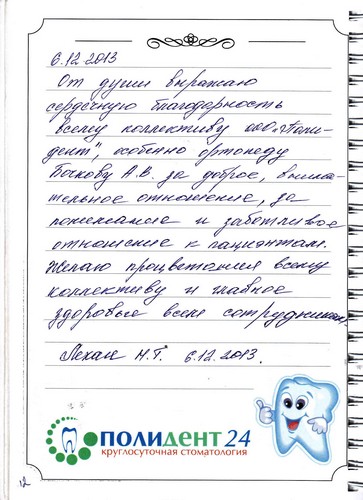 6.12 2013
От души выражаю
сердечную благодарность
всему коллективу ООО „Поли-
дент", особенно ортопеду
Бочкову А.В. за доброе, внима-
тельное отношение, за
понимание и заботливое
отношение к пациентам.
Желаю процветания всему
коллективу и главное
здоровье всем сотрудникам.
Лехан Н.Т. 6.12.2013.
ПОЛИДЕНТ 24
круглосуточная стоматология
12